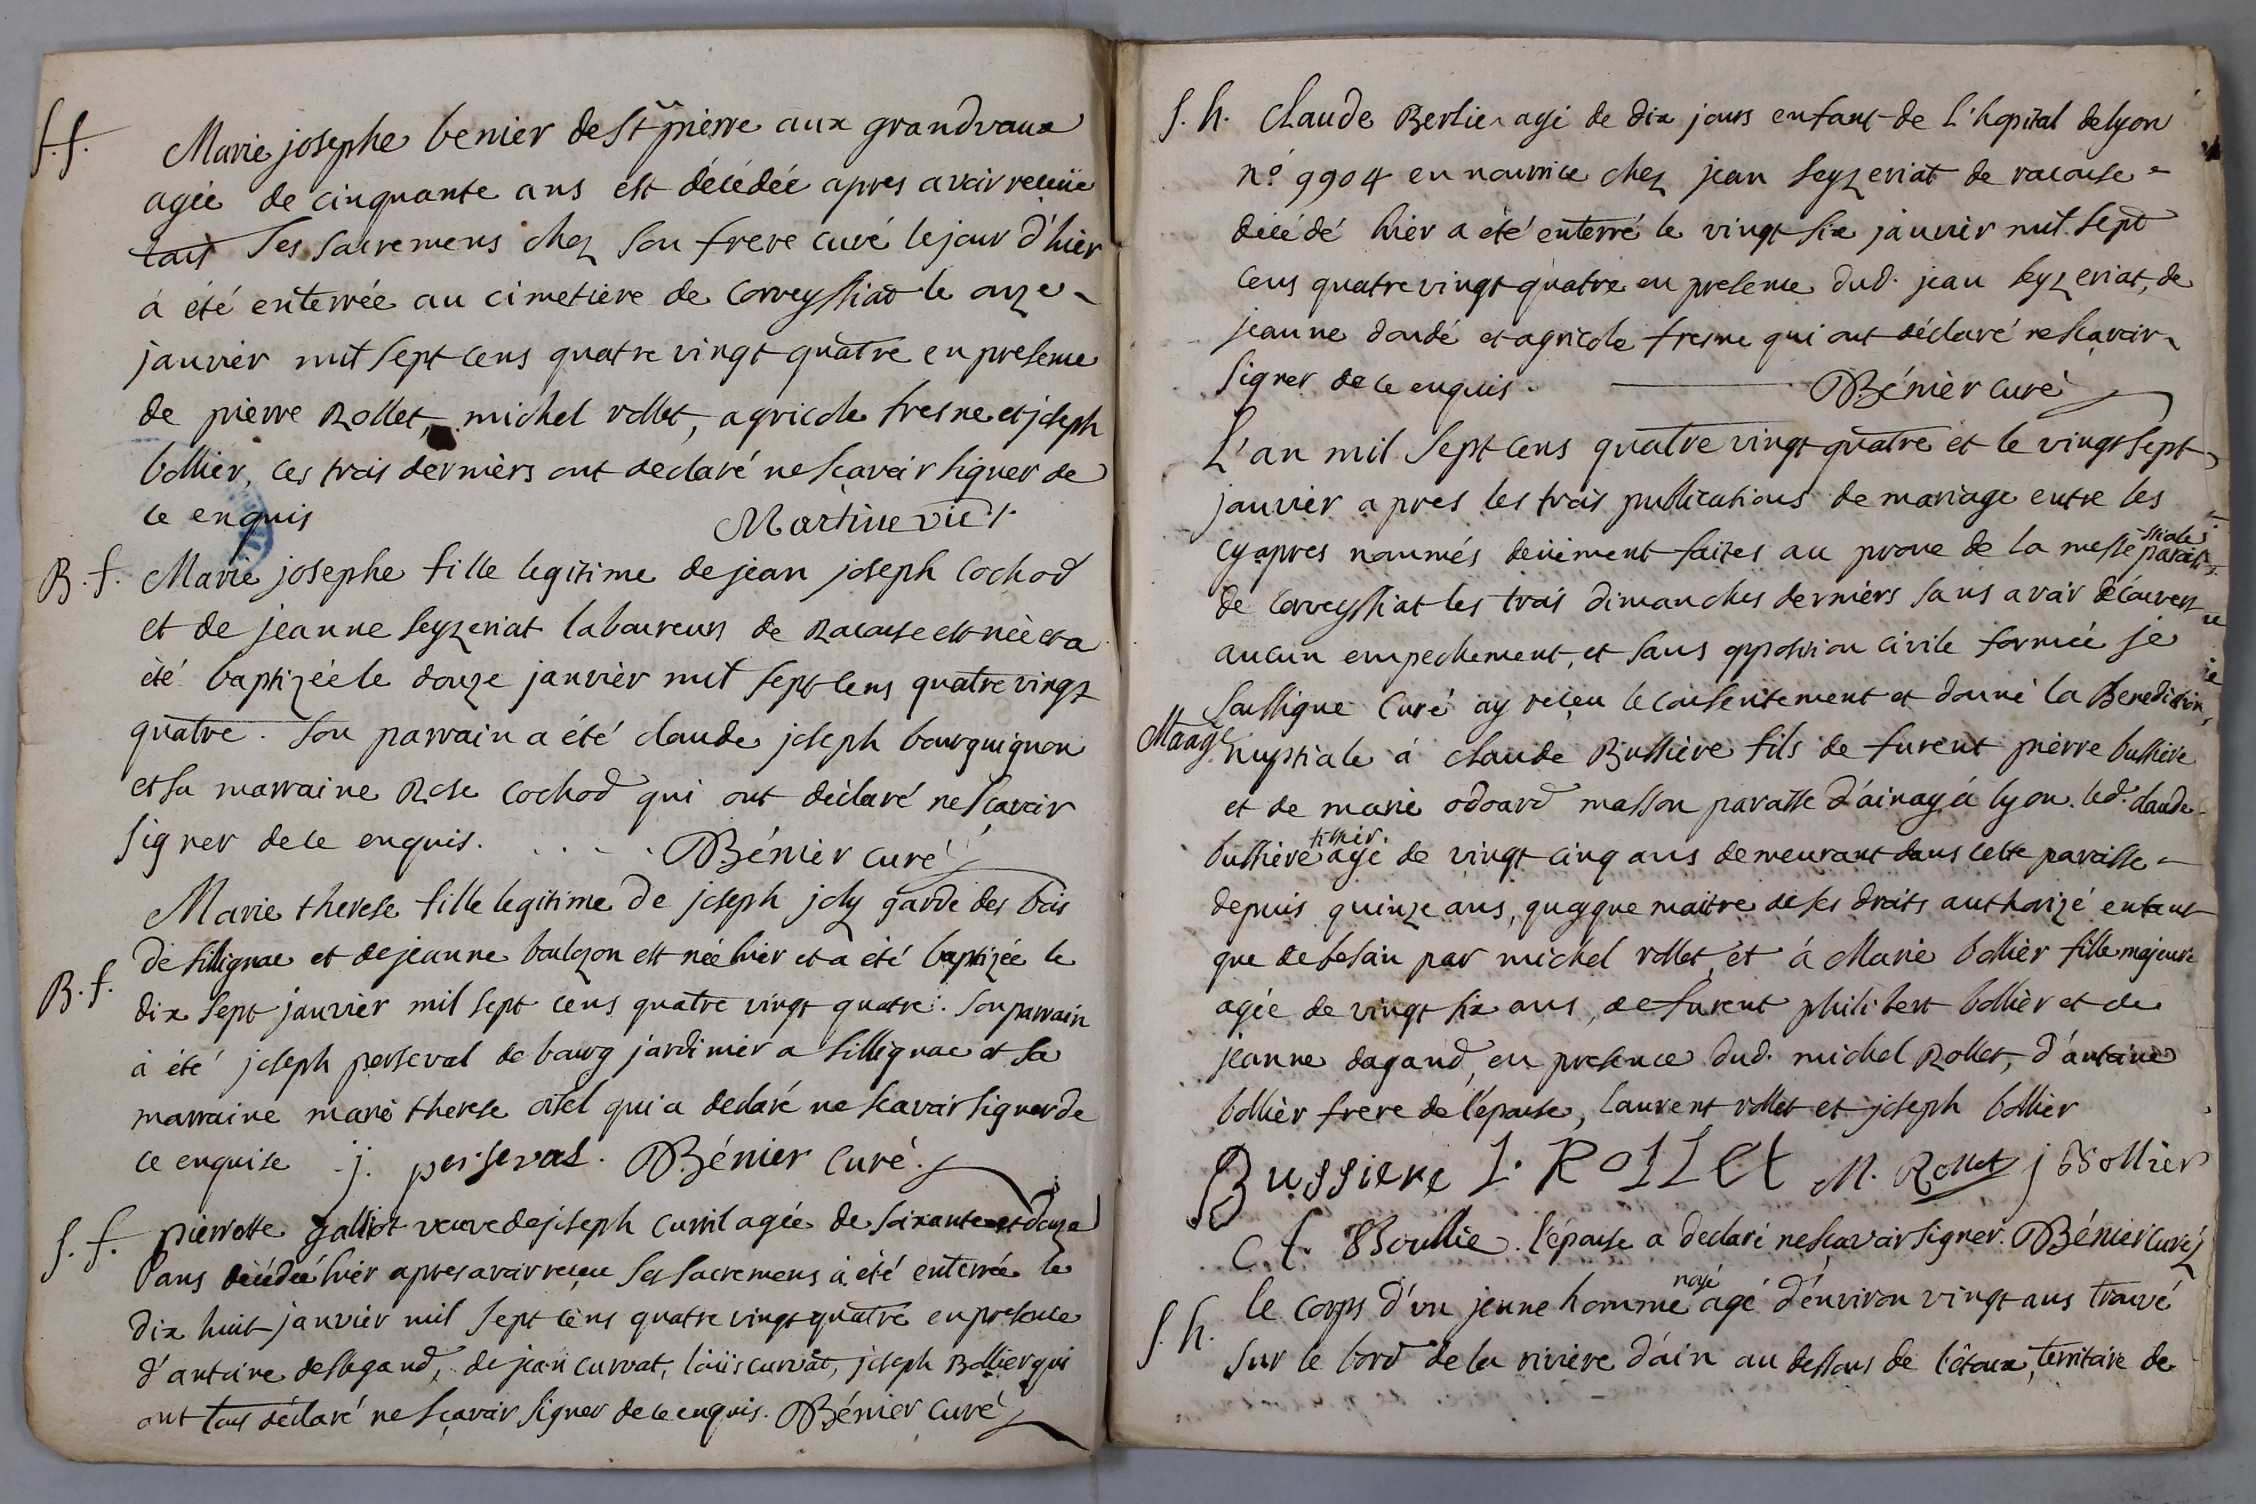 S. f. Marie josephe benier de St pierre aux grandvaux
agée de cinquante ans est décédée apres avoir reçeüe
tous Ses Sacremens chez Son frere curé le jour d'hier
à été enterrée au cimetiere de Corveyssiat le onze
janvier mil Sept cens quatre vingt quatre en presence
de pierre Rollet, michel rollet, agricole fresne et joseph
bollier, ces trois derniers ont declaré ne Scavoir Signer de
ce enquis Martine vic.
B. f. Marie josephe fille legitime de jean joseph Cochod
et de jeanne Seyzeriat laboureurs de Racouse est née et a
été baptizée le douze janvier mil Sept cens quatre vingt
quatre. Son parrain a été claude joseph bourguignon
et Sa marraine Rose Cochod qui ont déclaré ne Scavoir
Signer de ce enquis. . . . . Bénier curé
Marie therese fille legitime de joseph joly garde des bois
B. f. de Sillignac et de jeanne boulozon est née hier et a été baptizée le
dix Sept janvier mil Sept cens quatre vingt quatre. Son parrain
à été joseph perseval de bourg jardinier a Sillignac et Sa
marraine marie therese oisel qui a declaré ne Scavoir Signer de
ce enquise j. perseval. Bénier Curé.
S. f. pierrotte galliot veuve de joseph curvil agée de Soixante et douze
ans décédée hier apres avoir reçeu Ses Sacremens à été enterrée le
dix huit janvier mil Sept cens quatre vingt quatre en presence
d'antoine deslegand, de jean curvat, loüis curvat, joseph Bollier qui
ont tous déclaré ne Sçavoir Signer de ce enquis. Bénier Curé
S. h. Claude Berlier agé de dix jours enfant de l'hopital de lyon
n.º 9904 en nourrice chez jean Seyzeriat de racouse
décédé hier a été enterré le vingt Six janvier mil Sept
cens quatre vingt quatre en presence dud. jean Seyzeriat, de
jeanne dondé et agricole fresne qui ont déclaré ne Scavoir
Signer de ce enquis. Bénier curé
L'an mil Sept cens quatre vingt quatre et le vingt Sept
janvier apres les trois publications de mariage entre les
cy apres nommés deüement faites au prone de la messe paroissiale
de Corveyssiat les trois dimanches derniers Sans avoir découvert
aucun empechement, et Sans opposition civile formée je
Soussigné Curé ay reçeu le consentement et donné la Benediction
Mariage nuptiale à claude Bussiere fils de furent pierre bussiere
et de marie odoard masson paroisse d'ainay à lyon. led. claude
bussiere agé de vingt cinq ans demeurant dans cette paroisse
depuis quinze ans, quoyque maitre de Ses droits authorizé entant
que de besoin par michel rollet, et à Marie bollier fille majeure
agée de vingt Six ans, de furent philibert bollier et de
jeanne dagand, en presence dud. michel Rollet, d'antoine
bollier frere de l'épouse, Laurent rollet et joseph bollier
Bussiere L. Rollet M. Rollet j Bollier
C. f. Boullie. l'épouse a declaré ne Scavoir Signer. Bénier Curé
S. h. le Corps d'un jeune homme noyé agé d'environ vingt ans trouvé
Sur le bord de la riviere d'ain au dessous de l'étoux, territoire de